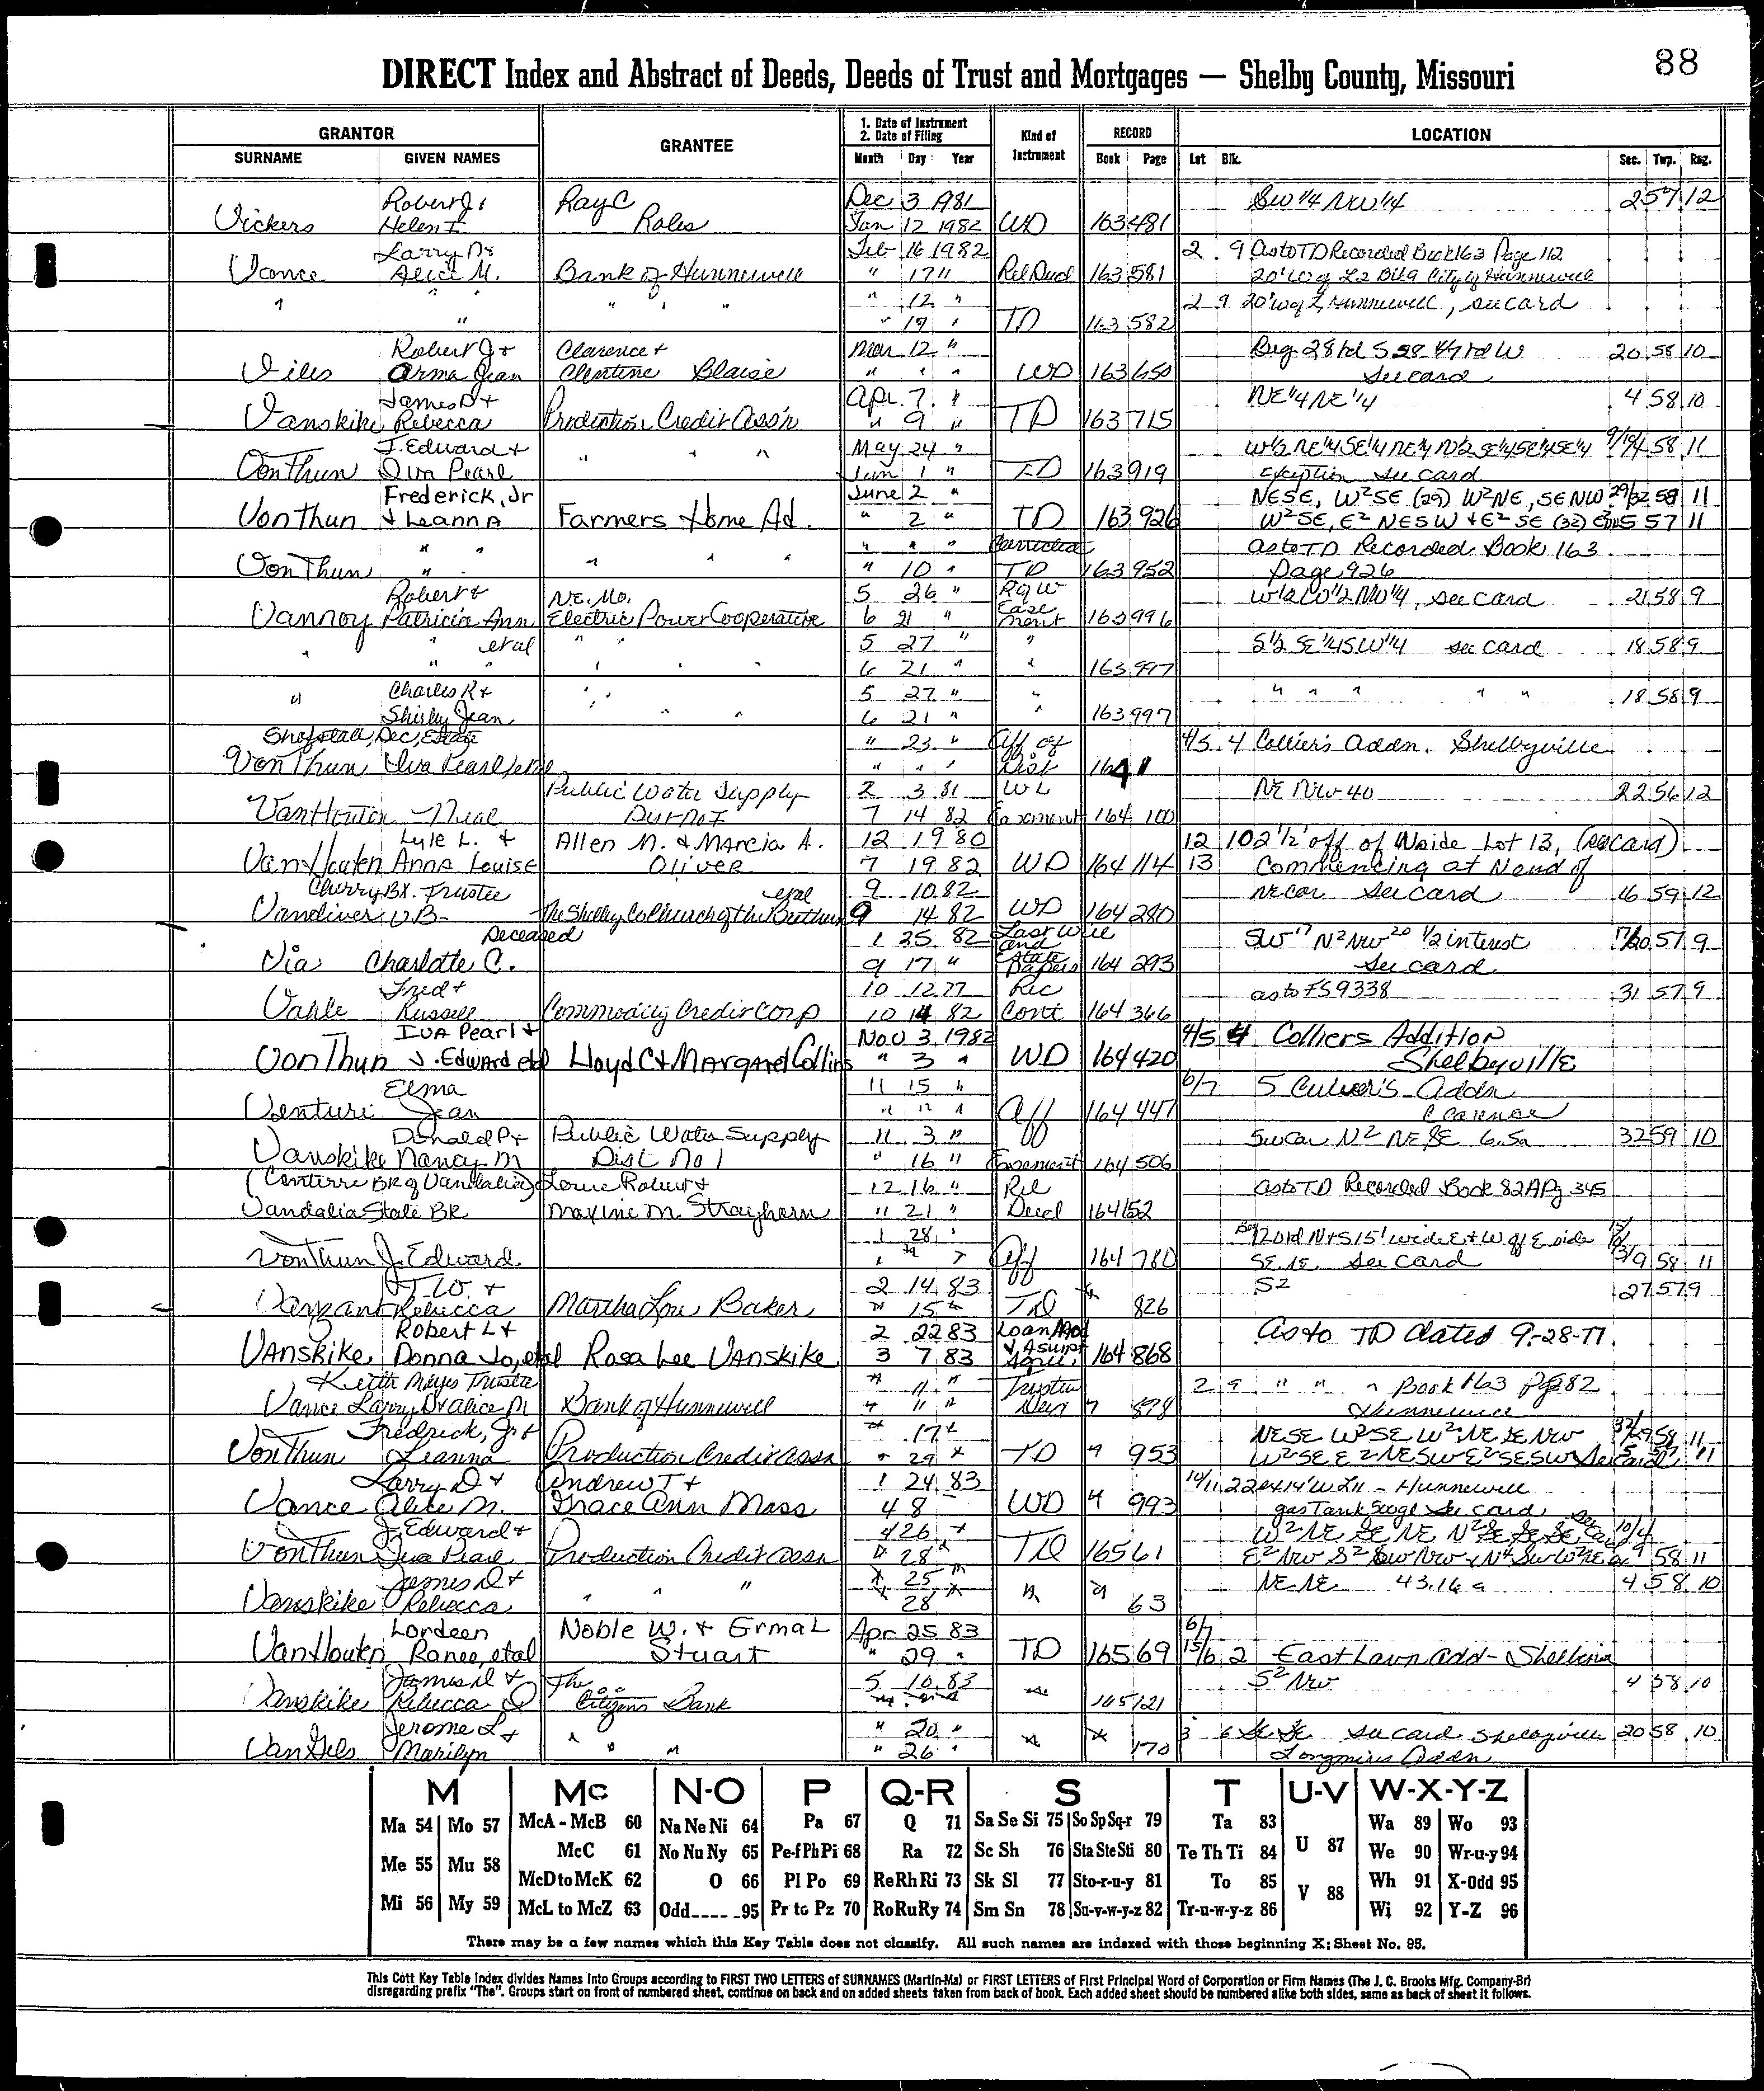 88
DIRECT Index and Abstract of Deeds, Deeds of Trust and Mortgages — Shelby County, Missouri
GRANTOR GRANTEE 1. Date of Instrument 2. Date of Filing Kind of Instrument RECORD LOCATION
SURNAME GIVEN NAMES Month Day Year Book Page Lot Blk. Sec. Twp. Rng.
Robert J & Ray C Dec 3 1981 SW 1/4 NW 1/4 25 57 12
Vickers Helen F. Roles Jan 12 1982 WD 163 481
Larry D & Feb 16 1982 2 9 As to TD Recorded Book 163 Page 112
Vance Alice M. Bank of Hunnewell " 17 " Rel Deed 163 581 20' W of L2 Blk 9 City of Hunnewell
" " " " " " " 12 " 2 9 20' W of 2, Hunnewell, see card
" " 17 " TD 163 582
Robert J & Clarence & Mar 12 " Beg 28 rd S 28 4/7 rd W 20 58 10
Viles Arma Jean Clentine Blaise " " " WD 163 650 See card
James D & Apr. 7 " NE 1/4 NE 1/4 4 58 10
Vanskike Rebecca Production Credit Ass'n " 9 " TD 163 715
J. Edward & " " " May 24 " W 1/2 NE 1/4 SE 1/4 NE 1/4 N 1/2 SE 1/4 SE 1/4 SE 1/4 58 11
VonThun Iva Pearl Jun 1 " TD 163 919 Exception see card
Frederick, Jr June 2 " NESE, W2SE (29) W2NE, SE NW 29/32 58 11
VonThun & Leann A Farmers Home Ad. " 2 " TD 163 926 W2SE, E2 NESW & E2 SE (32) 5 57 11
" " " " " " " " Corrected As to TD Recorded Book 163
VonThun " " 10 " TD 163 952 Page 926
Robert & N.E. Mo. 5 26 " R of W W 1/2 W 1/2 NW 1/4, see card 21 58 9
Vannoy Patricia Ann Electric Power Cooperative 6 21 " Easement 163 996
" " etal " " 5 27 " " S 1/2 SE 1/4 SW 1/4 see card 18 58 9
" " " " " 6 21 " " 163 997
" Charles R & " " 5 27 " " " " " " " 18 58 9
Shirley Jean " " 6 21 " " 163 997
Dec, Estate " 23 " Aff of 4/5 4 Collier's Addn. Shelbyville
VonThun Iva Pearl, etal " " " Dist 164 1
Public Water Supply 2 3 81 WL NE NW 40 22 56 12
VanHouten Neal Dist No 1 7 14 82 Easement 164 100
Lyle L. & Allen M. & Marcia A. 12 19 80 12 10 2 1/2' off of N side Lot 13, (see card)
VanHouten Anna Louise Oliver 7 19 82 WD 164 114 13 Commencing at N end of
Cherry BX. Trustee etal 9 10 82 NE cor see card 16 59 12
Vandiver V.B. The Shelby Co Church of the Brethren 9 14 82 WD 164 280
Deceased 1 25 82 Last Will and SW 17 N2 NW 20 1/2 interest 17/20 57 9
Via Charlotte C. 9 17 " Estate Papers 164 293 See card
Fred & 10 12 77 Rec as to FS 9338 31 57 9
Vahle Russell Commodity Credit Corp 10 14 82 Cont 164 366
Iva Pearl & Nov 3, 1982 4/5 4 Colliers Addition
VonThun J. Edward etal Lloyd C & Margaret Collins " 3 " WD 164 420 Shelbyville
Elma 11 15 " 6/7 5 Culver's Addn
Venturi Jean " " " Aff 164 447 Clarence
Donald P & Public Water Supply 11 3 " SW cor N2 NE SE 6.5a 32 59 10
Vanskike Nancy M Dist No 1 " 16 " Easement 164 506
(Centerre BK of Vandalia) Lowe Robert & 12 16 " Rel As to TD Recorded Book 82A Pg 345
Vandalia State BK Maxine M. Strayhorn 11 21 " Deed 164 152
1 28 " 120 rd N & S 15' wide E & W of E side
VonThun J. Edward Aff 164 780 SE NE See card 3/9 58 11
W. & 2 14 83 S2 27 57 9
Rebecca Martha Lou Baker " 15 " TD " 826
Robert L & 2 22 83 Loan Mod As to TD dated 9-28-77.
Vanskike Donna Jo, etal Rosa Lee Vanskike 3 7 83 & Asump Agree. 164 868
Keith Mayes Trustee " 11 " Trustee 2 9 " " " Book 163 Pg 582
Vance Larry D & Alice M Bank of Hunnewell " 11 " Deed " 878 Hunnewell
Fredrick, Jr & " 17 " NESE W2SE W2NE SE NW 32/29 58 11
VonThun Leanna Production Credit Assn " 29 " TD " 953 W2SE E2 NESW E2SESW See card 5 57 11
Larry D & Andrew T & 1 24 83 10/11 22 14' W L11 - Hunnewell
Vance Alice M. Grace Ann Moss 4 8 WD " 993 gas Tank 500 gl See card
J. Edward & 4 26 " W2 NE SE NE N2 SE SE SE 10/4
VonThun Iva Pearl Production Credit Assn " 28 " TD 165 61 E2 NW S2 SW NW 9 58 11
James D & " 25 " NE NE 43.16 a 4 58 10
Vanskike Rebecca " " " " 28 " " " 63
Lordeen Noble W. & Erma L Apr 25 83 6/7
VanHouten Ranee, etal Stuart " 29 " TD 165 69 15/16 2 East Lawn Add - Shelbina
James D & The 5 16 83 S2 NW 4 58 10
Vanskike Rebecca D Citizens Bank " " " " 165 121
Jerome L & " 20 " 3 6 SE SE See card Shelbyville 20 58 10
VanGels Marilyn " " " " 26 " " " 170 Longmires Addn
M Mc N-O P Q-R S T U-V W-X-Y-Z
Ma 54 Mo 57 McA - McB 60 Na Ne Ni 64 Pa 67 Q 71 Sa Se Si 75 So Sp Sq-r 79 Ta 83 U 87 Wa 89 Wo 93
Me 55 Mu 58 McC 61 No Nu Ny 65 Pe-f Ph Pi 68 Ra 72 Sc Sh 76 Sta Ste Sti 80 Te Th Ti 84 V 88 We 90 Wr-u-y 94
McD to McK 62 O 66 Pl Po 69 Re Rh Ri 73 Sk Sl 77 Sto-r-u-y 81 To 85 Wh 91 X-Odd 95
Mi 56 My 59 McL to McZ 63 Odd_ _ _ _ -95 Pr to Pz 70 Ro Ru Ry 74 Sm Sn 78 Su-v-w-y-z 82 Tr-u-w-y-z 86 Wi 92 Y-Z 96
There may be a few names which this Key Table does not classify. All such names are indexed with those beginning X; Sheet No. 95.
This Cott Key Table Index divides Names into Groups according to FIRST TWO LETTERS of SURNAMES (Martin-Ma) or FIRST LETTERS of First Principal Word of Corporation or Firm Names (The J. C. Brooks Mfg. Company-Br)
disregarding prefix "The". Groups start on front of numbered sheet, continue on back and on added sheets taken from back of book. Each added sheet should be numbered alike both sides, same as back of sheet it follows.